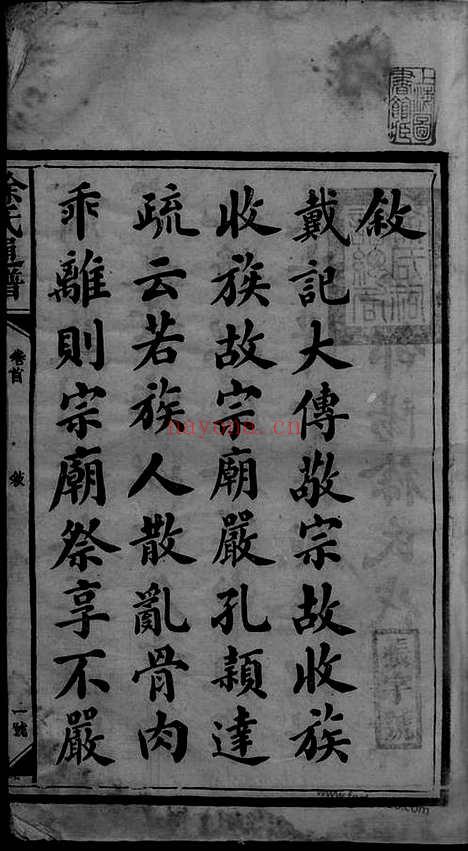 敘
戴記大傳敬宗故收族
收族故宗廟嚴孔穎達
疏云若族人散亂骨肉
乖離則宗廟祭享不嚴
徐氏通譜
卷首
敘
一號
上海圖書館藏
張字號
nayona.cn